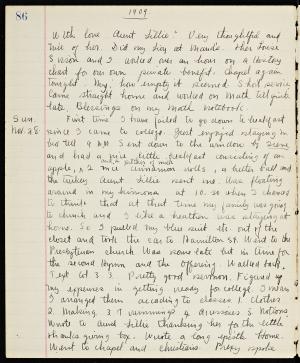 86
1909.
With love Aunt Lillie." Very thoughtful and
nice of her. Did my hay at Maude. Then Louise
and I worked over an hour on a History
chart for our own private benefit. Chapel again
tonight. My, how empty it seemed. Short service.
Came straight home and worked on Math till quite
late. Blessings on my Math notebook.
Sun.
Nov. 28.
First time I have failed to go down to breakfast
since I came to college. Just enjoyed staying in
bed till 9 AM. Sent down to the window by
and had a nice little breakfast consisting of an
apple, 2 cinnamon rolls, a butter ball and
the turkey Aunt Lillie sent us. Was floating
around in my kimona at 10.30 when I chanced
to think that at that time my family was going
to church and I like a heathen was staying at
home. So I pulled my blue suit etc. out of the
closet and took the car to Hamilton St. Went to the
Presbyterian church. Was some late but in time for
the second hymn and the offering. Walked back.
Text Col 3:3. Pretty good sermon. Figured up
my expenses in getting ready for college. I mean
I arranged them according to classes, 1. Clothes
2. Making 3. Trimmings 4. Notions.
Wrote to Aunt Lillie thanking her for the little
thanksgiving box. Wrote a long epistle home.
Went to chapel and Christians. Prexy spoke